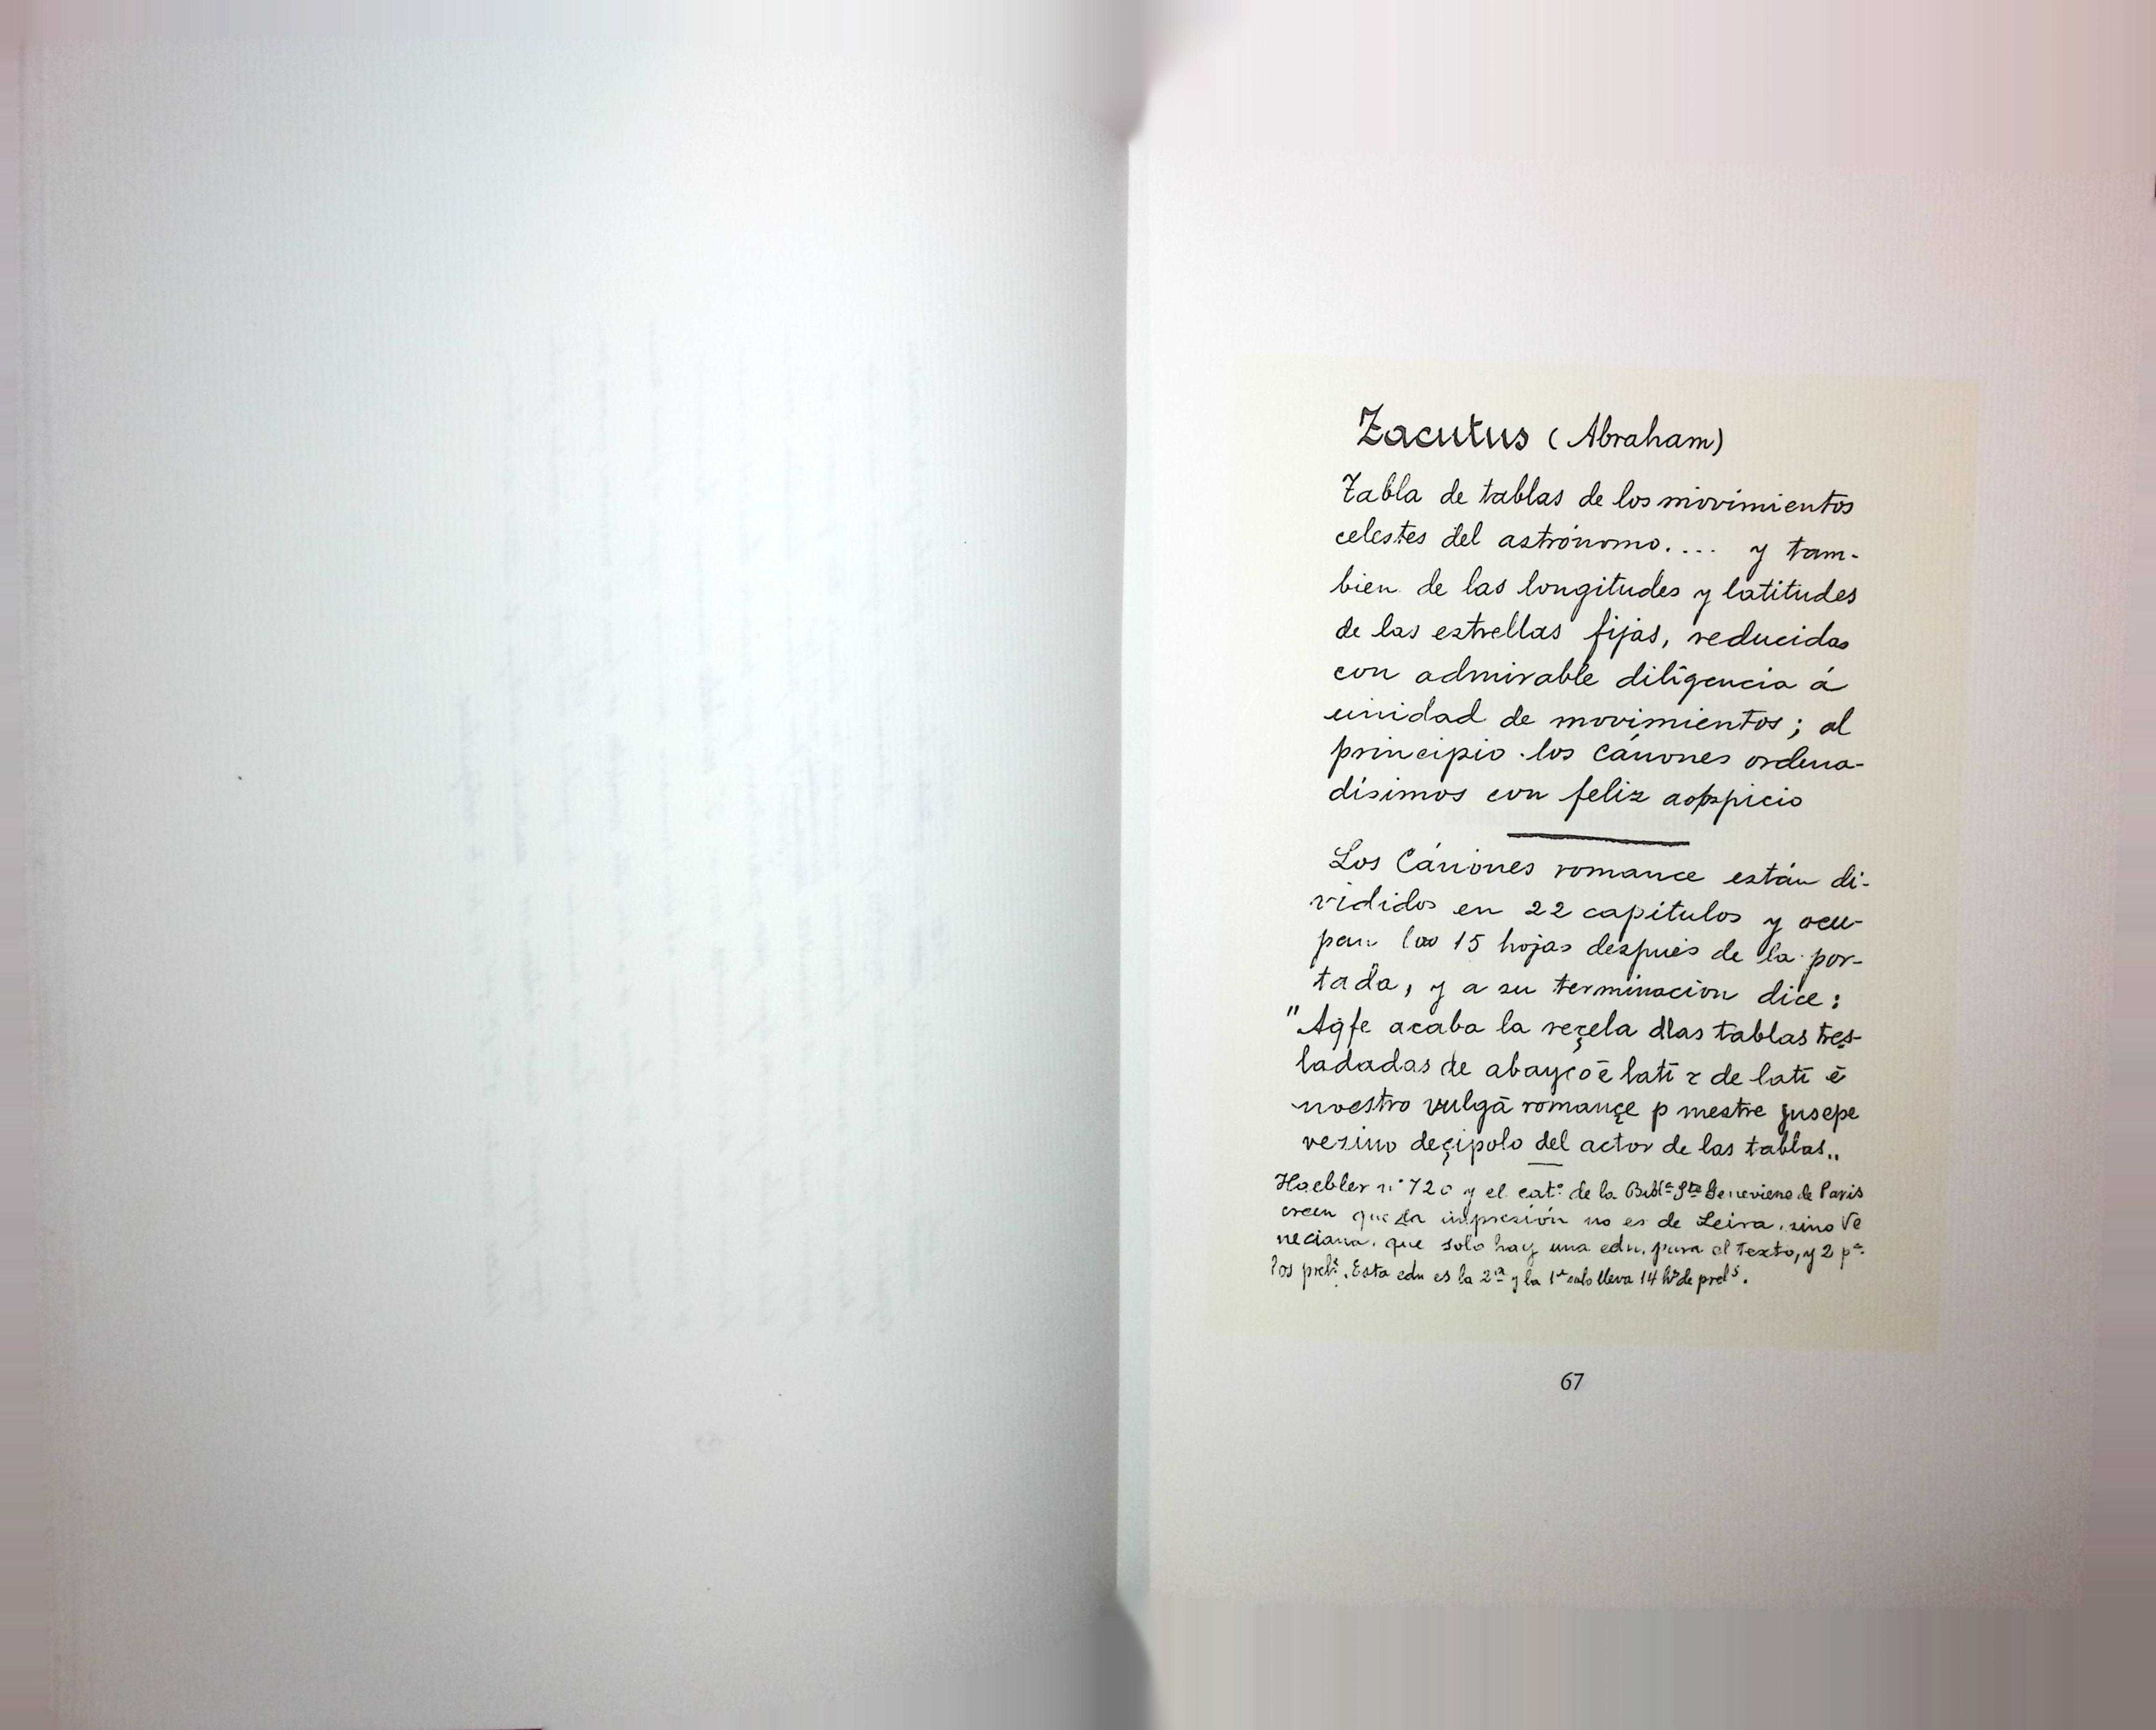 Zacutus (Abraham)
Tabla de tablas de los movimientos
celestes del astrónomo.... y tam-
bien de las longitudes y latitudes
de las estrellas fijas, reducidas
con admirable diligencia á
unidad de movimientos; al
principio los Cánones ordena-
dísimos con feliz
Los Cánones romance están di-
vididos en 22 capítulos y ocu-
pan las 15 hojas después de la por-
tada, y a su terminacion dice:
"Aqfe acaba la reçela dlas tablas tres-
ladadas de abayco ē latī z de latī ē
nuestro vulgā romançe p mestre jusepe
vezino deçipolo del actor de las tablas„
Haebler nº 720 y el catº de la Biblª Stª Genevieve de Paris
creen que la impresión no es de Leira, sino Ve
neciana. que solo hay una edn. para el texto, y 2 pª
los prelˢ. Esta edn es la 2ª y la 1ª solo lleva 14 hˢ de prelˢ.
67